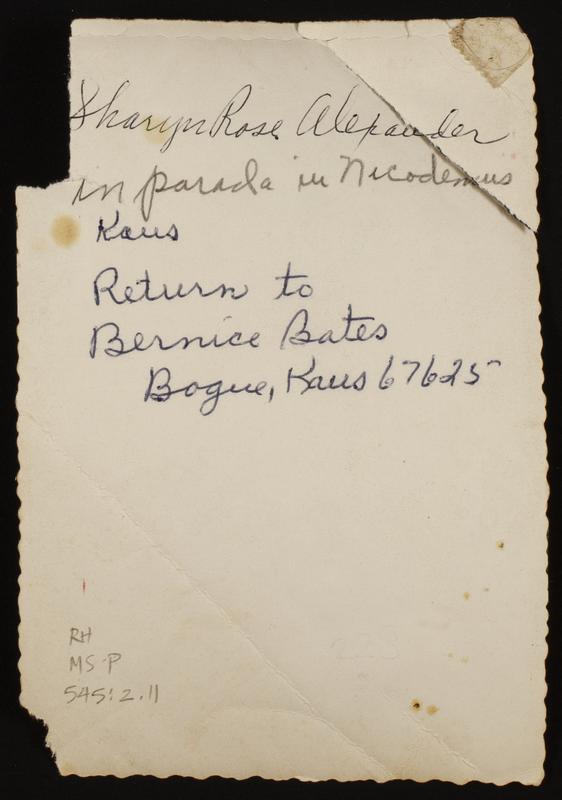 Sharyn Rose Alexander
in parada in Nicodemus
Kans
Return to
Bernice Bates
Bogue, Kans 67625
RH
MS-P
545:2.11